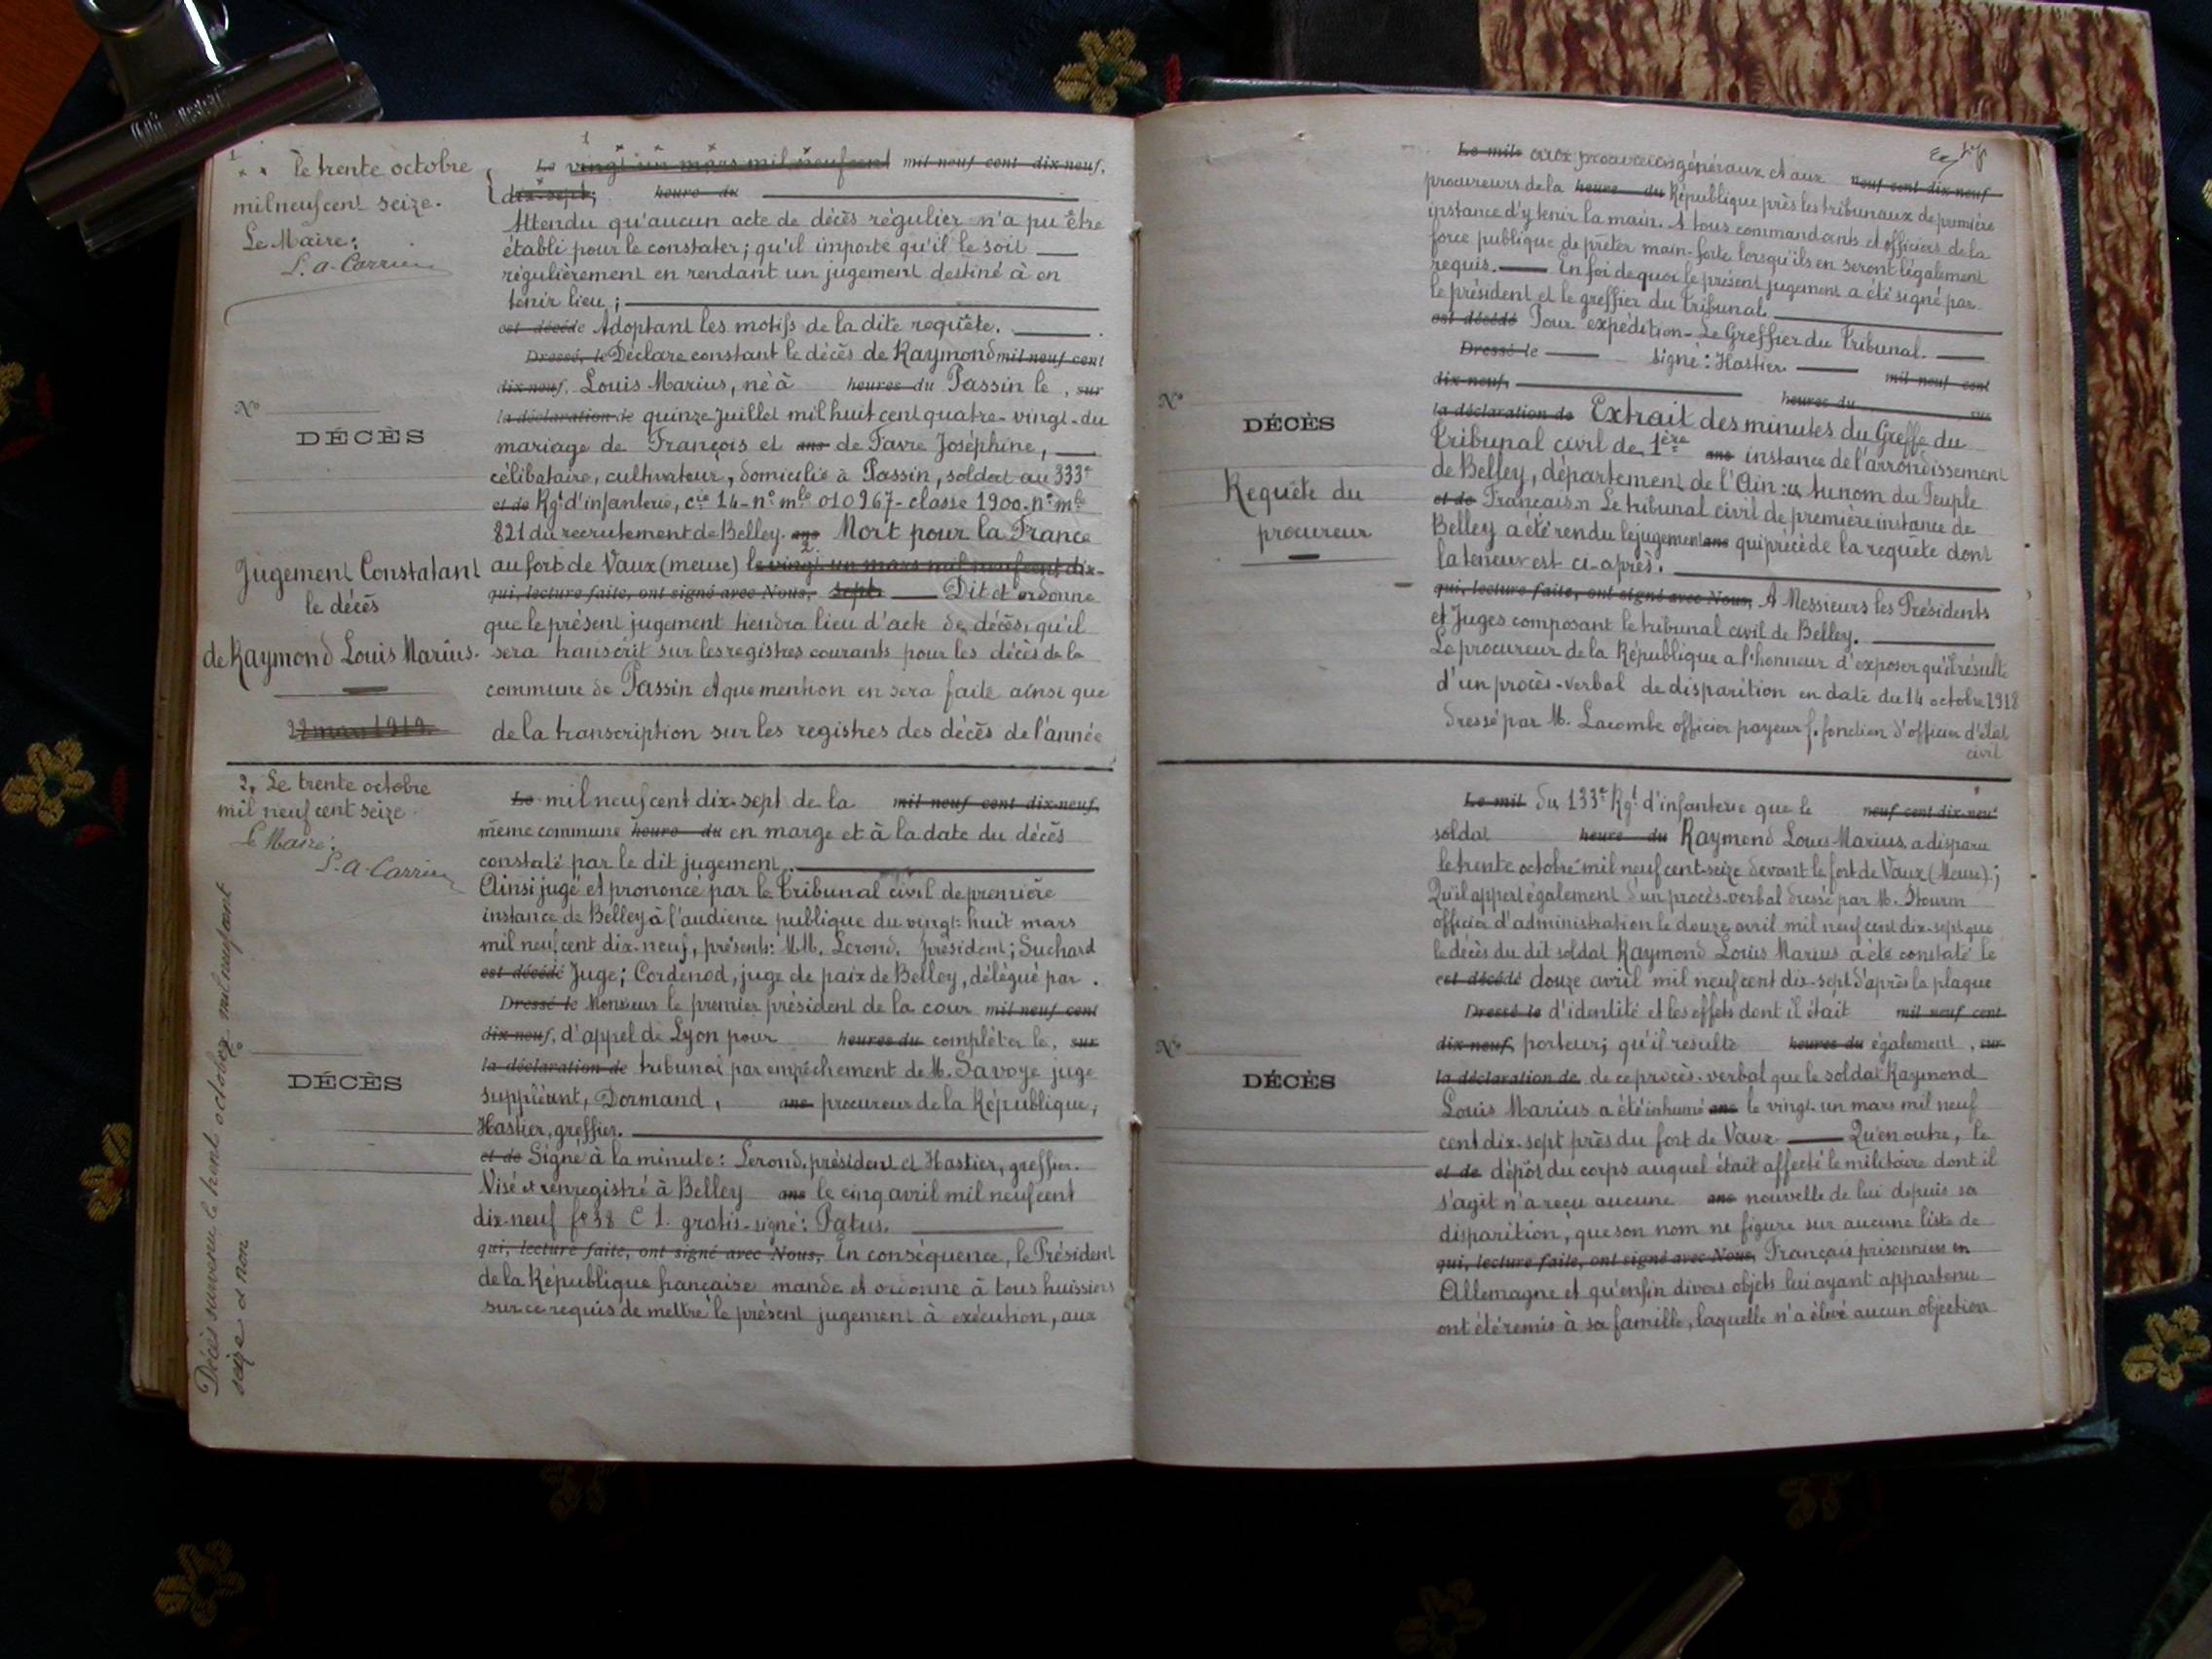 1
** le trente octobre
mil neuf cent seize.
Le Maire:
L. a. Carrier
N°
DÉCÈS
Jugement Constatant
le décès
de Raymond Louis Marius.
22 mars 1919.
1
Le vingt un mars mil neuf cent mil neuf cent dix-neuf,
dix-sept; heure du
Attendu qu'aucun acte de décès régulier n'a pu être
établi pour le constater; qu'il importe qu'il le soit
régulièrement en rendant un jugement destiné à en
tenir lieu;
est décédé Adoptant les motifs de la dite requête.
Dressé, le Déclare constant le décès de Raymond mil neuf cent
dix-neuf, Louis Marius, né à heures du Passin le, sur
la déclaration de quinze Juillet mil huit cent quatre-vingt-du
mariage de François et ans de Favre Joséphine,
célibataire, cultivateur, domicilié à Passin, soldat au 333e
et de Rgt d'infanterie, cie 14-n° mle 010967-classe 1900-n° mle
821 du recrutement de Belley. ans Mort pour la France
2
au fort de Vaux (meuse) le vingt un mars mil neuf cent dix-
qui, lecture faite, ont signé avec Nous, sept. Dit et ordonne
que le présent jugement tiendra lieu d'acte de décès, qu'il
sera transcrit sur les registres courants pour les décès de la
commune de Passin et que mention en sera faite ainsi que
de la transcription sur les registres des décès de l'année
2. Le trente octobre
mil neuf cent seize.
Le Maire:
L. a. Carrier
DÉCÈS
Décès survenu le trente octobre mil neuf cent
seize et non
Le mil neuf cent dix-sept de la mil neuf cent dix-neuf,
même commune heure du en marge et à la date du décès
constaté par le dit jugement.
Ainsi jugé et prononcé par le Tribunal civil de première
instance de Belley à l'audience publique du vingt-huit mars
mil neuf cent dix-neuf, présents: MM. Lerond, président; Suchard
est décédé Juge; Cordenod, juge de paix de Belley, délégué par
Dressé le Monsieur le premier président de la cour mil neuf cent
dix-neuf, d'appel de Lyon pour heures du compléter le, sur
la déclaration de tribunal par empêchement de M. Savoye juge
suppléant, Dormand, ans procureur de la République,
Hastier, greffier.
et de Signé à la minute: Lerond, président et Hastier, greffier.
Visé et enregistré à Belley ans le cinq avril mil neuf cent
dix-neuf f° 38 C 1. gratis-signé: Patus.
qui, lecture faite, ont signé avec Nous, En conséquence, le Président
de la République française mande et ordonne à tous huissiers
sur ce requis de mettre le présent jugement à exécution, aux
N°
DÉCÈS
Requête du
procureur
Le mil aux procureurs généraux et aux neuf cent dix-neuf
procureurs de la heure du République près les tribunaux de première
instance d'y tenir la main. A tous commandants et officiers de la
force publique de prêter main-forte lorsqu'ils en seront légalement
requis. En foi de quoi le présent jugement a été signé par
le président et le greffier du Tribunal.
est décédé Pour expédition-Le Greffier du Tribunal.
Dressé le signé: Hastier mil neuf cent
dix-neuf, heures du sur
la déclaration de Extrait des minutes du Greffe du
Tribunal civil de 1ère ans instance de l'arrondissement
de Belley, département de l'Ain: « Au nom du Peuple
et de Français » Le tribunal civil de première instance de
Belley a été rendu le jugement ans qui précède la requête dont
la teneur est ci-après.
qui, lecture faite, ont signé avec Nous, A Messieurs les Présidents
et Juges composant le tribunal civil de Belley.
Le procureur de la République a l'honneur d'exposer qu'il résulte
d'un procès-verbal de disparition en date du 14 octobre 1918
dressé par M. Lacombe officier payeur f. fonction d'officier d'état
civil
N°
DÉCÈS
Le mil du 133e Rgt d'infanterie que le neuf cent dix-neuf
soldat heure du Raymond Louis-Marius, a disparu
le trente octobre mil neuf cent-seize devant le fort de Vaux (Meuse);
Qu'il appert également d'un procès-verbal dressé par M. Stourm
officier d'administration le douze avril mil neuf cent dix-sept que
le décès du dit soldat Raymond Louis Marius a été constaté le
est décédé douze avril mil neuf cent dix-sept d'après la plaque
Dressé le d'identité et les effets dont il était mil neuf cent
dix-neuf, porteur; qu'il resulte heures du également, sur
la déclaration de de ce procès-verbal que le soldat Raymond
Louis Marius a été inhumé ans le vingt-un mars mil neuf
cent dix-sept près du fort de Vaux Qu'en outre, le
et de dépôt du corps auquel était affecté le militaire dont il
s'agit n'a reçu aucune ans nouvelle de lui depuis sa
disparition, que son nom ne figure sur aucune liste de
qui, lecture faite, ont signé avec Nous, Français prisonniers en
Allemagne et qu'enfin divers objets lui ayant appartenu
ont été remis à sa famille, laquelle n'a élevé aucun objection